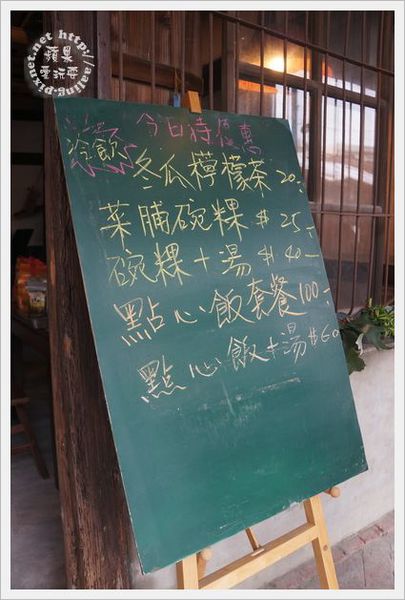 蘋果
愛玩耍
http://aajing.pixnet.net
今日特優惠
冷飲
冬瓜檸檬茶 20.
菜脯碗粿 $25-
碗粿+湯 $40-
點心飯套餐100-
點心飯+湯$60